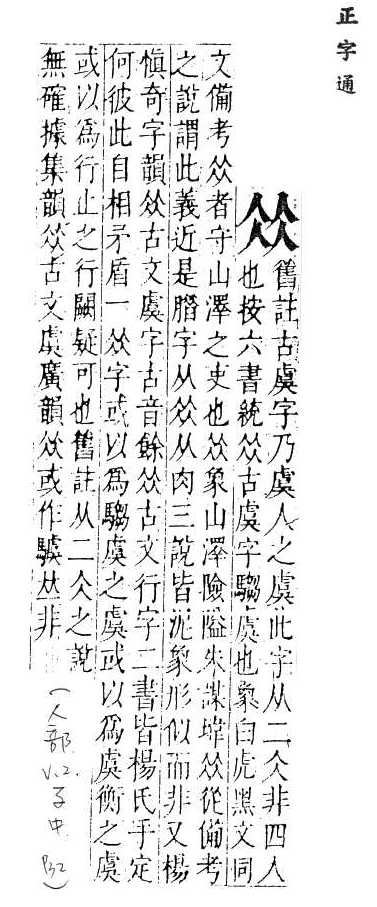 正字通
𠈌
舊註古虞字乃虞人之虞此字从二仌非四人
也按六書統𠈌古虞字騶虞也象白虎黑文同
文備考𠈌者守山澤之吏也𠈌象山澤險隘朱謀㙔𠈌從備考
之說謂此義近是腊字从𠈌从肉三說皆泥象形似而非又楊
慎奇字韻𠈌古文虞字古音餘𠈌古文行字二書皆楊氏手定
何彼此自相矛盾一𠈌字或以爲騶虞之虞或以爲虞衡之虞
或以爲行止之行闕疑可也舊註从二仌之說
無確據集韻𠈌古文虞廣韻𠈌或作𠀤非
(人部 v.2. 子中 P32)